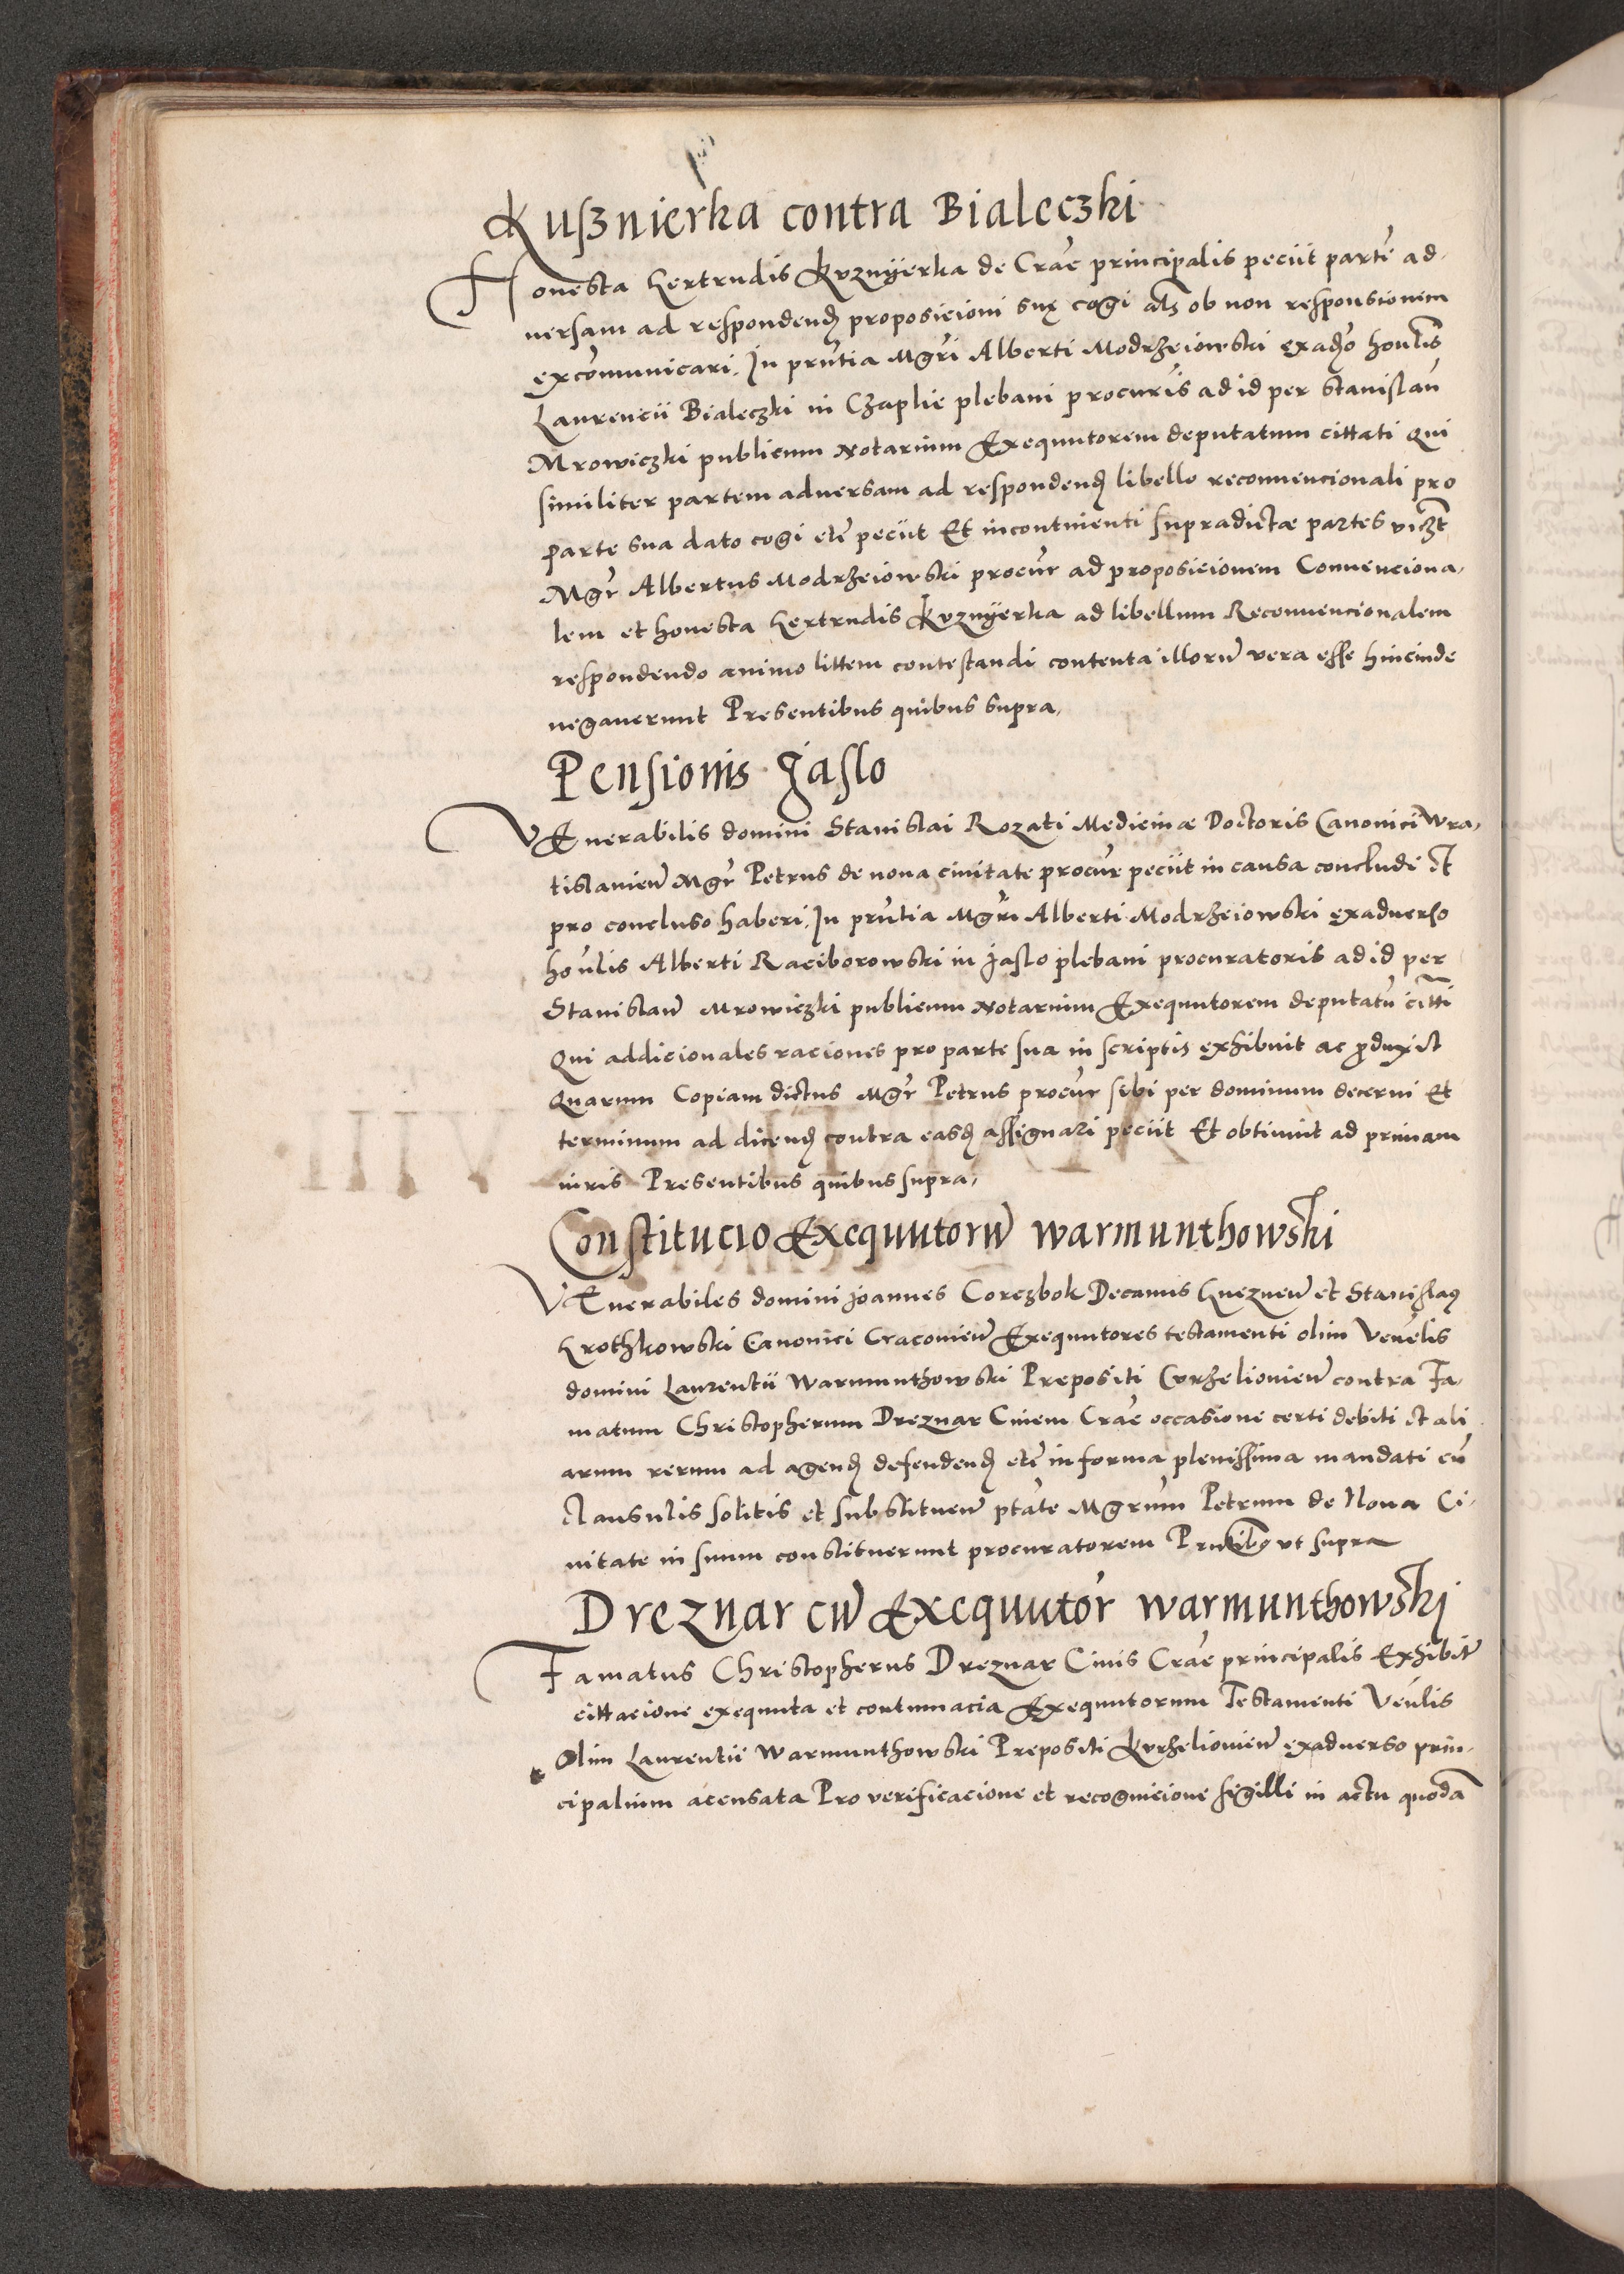 Kuſznierka contra Bialeczki
Honesta Hertrudis Kuznÿerka de Crac̄ principalis peciit partē ad-
uersam ad respondend̨ proposicioni suę cogi als̄ ob non responsionem
excōmunicari. In prn̄tia Mgr̄i Alberti Modrzeiowski exadṽo honl̄is
Laurencii Bialeczki in Czaplie plebani procur̄is ad id per Stanislaū
Mrowiczki publicum Notarium Exequutorem deputatum cittati Qui
similiter partem aduersam ad respondend̨ libello reconuencionali pro
parte sua dato cogi etc̄ peciit Et incontinenti supradictæ partes vicz̄t
Mgr̄ Albertus Modrzeiowski procur̄ ad proposicionem Conuenciona-
lem et honesta Hertrudis Kuznÿerka ad libellum Reconuencionalem
respondendo animo littem contestandi contenta illorū vera esse hincinde
negauerunt Presentibus quibus supra,
Pensionis Jaslo
VEnerabilis domini Stanislai Rozati Medicinæ Doctoris Canonici Wra-
tislauien̄ Mgr̄ Petrus de noua ciuitate procur̄ peciit in causa concludi et
pro concluso haberi. In prn̄tia Mgr̄i Alberti Modrzeiowski exaduerso
hon̄lis Alberti Raciborowski in Jaslo plebani procuratoris ad id per
Stanislaū Mrowiczki publicum Notarium Exequutorem deputatū citt̄i
Qui addicionales raciones pro parte sua in scriptis exhibuit ac ꝓduxit
Quarum Copiam dictus Mgr̄ Petrus procur̄ sibi per dominum decerni Et
terminum ad dicend̨ contra easd̨ assignari peciit Et obtinuit ad primam
iuris Presentibus quibus supra,
Constitucio Exequutorū warmunthowski
VEnerabiles domini Joannes Corezbok Decanus Gneznen̄ et Stanislaꝰ
Krothkowski Canonici Cracouien̄ Exequutores testamenti olim Venēlis
domini Laurentii Warmunthowski Prepositi Curzeliouien̄ contra Fa-
matum Christopherum Dreznar Ciuem Crac̄ occasione certi debiti et ali
arum rerum ad agend̨ defendend̨ etc̄ in forma plenissima mandati cū
clausulis solitis et substituen̄ ptāte Mgrūm Petrum de Noua Ci-
uitate in suum constituerunt procuratorem Prn̄tibꝰ vt supra
Dreznar cū Exequutor̄ warmunthowski
Famatus Christopherus Dreznar Ciuis Crac̄ principalis Exhibitē
cittacione exequuta et contumacia Exequutorum Testamenti Vēnlis
Olim Laurentii Warmunthowski Prepositi Kurzeliouien̄ exaduerso prin-
cipalium acensata Pro verificacione et recognicione sigilli in actu quodā